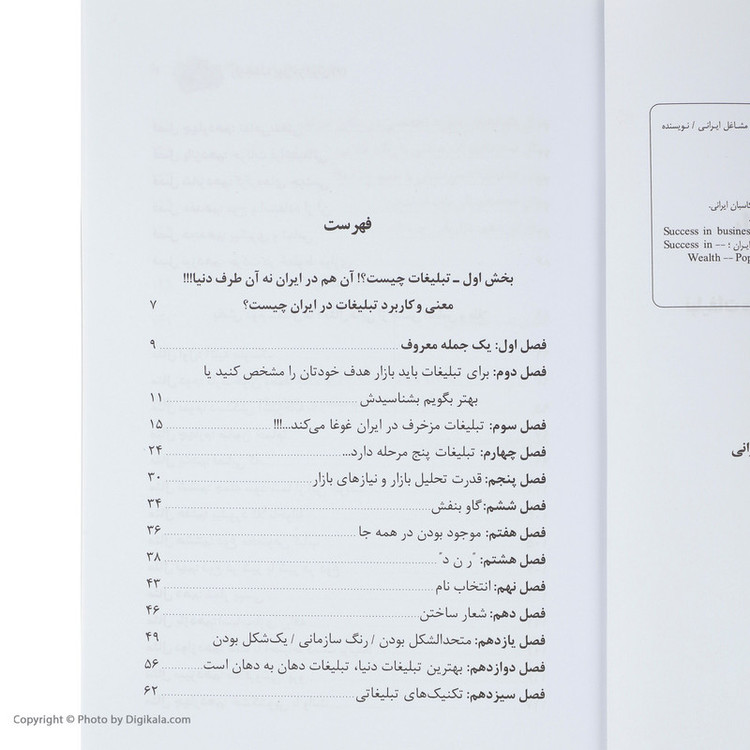 مشاغل ایرانی / نویسنده
کاسبان ایرانی.
Success in business
ایران : -- Success in
Wealth -- Pop
رانی
فهرست
بخش اول ـ تبلیغات چیست؟! آن هم در ایران نه آن طرف دنیا!!!
معنی و کاربرد تبلیغات در ایران چیست؟ ۷
فصل اول: یک جمله معروف ۹
فصل دوم: برای تبلیغات باید بازار هدف خودتان را مشخص کنید یا
بهتر بگویم بشناسیدش ۱۱
فصل سوم: تبلیغات مزخرف در ایران غوغا می‌کند...!!! ۱۵
فصل چهارم: تبلیغات پنج مرحله دارد... ۲۴
فصل پنجم: قدرت تحلیل بازار و نیازهای بازار ۳۰
فصل ششم: گاو بنفش ۳۴
فصل هفتم: موجود بودن در همه جا ۳۶
فصل هشتم: "ر ن د" ۳۸
فصل نهم: انتخاب نام ۴۳
فصل دهم: شعار ساختن ۴۶
فصل یازدهم: متحدالشکل بودن / رنگ سازمانی / یک‌شکل بودن ۴۹
فصل دوازدهم: بهترین تبلیغات دنیا، تبلیغات دهان به دهان است ۵۶
فصل سیزدهم: تکنیک‌های تبلیغاتی ۶۲
Copyright © Photo by Digikala.com